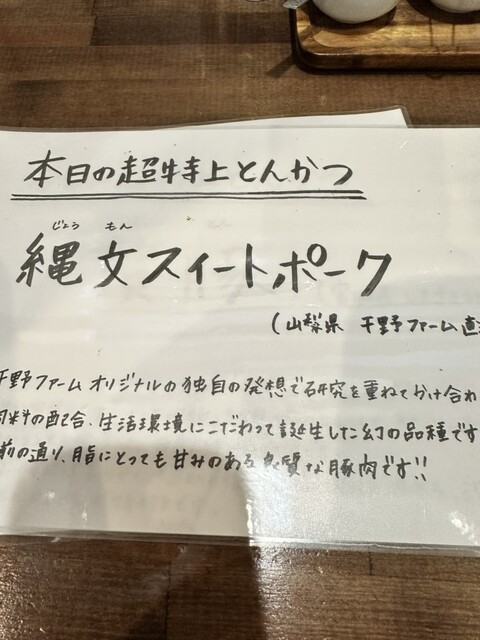 本日の超特上とんかつ
じょう もん
縄文スイートポーク
(山梨県 千野ファーム直
千野ファームオリジナルの独自の発想で研究を重ねてかけ合わ
飼料の配合、生活環境にこだわって誕生した幻の品種です
前の通り、脂にとっても甘みのある 質な豚肉です!!